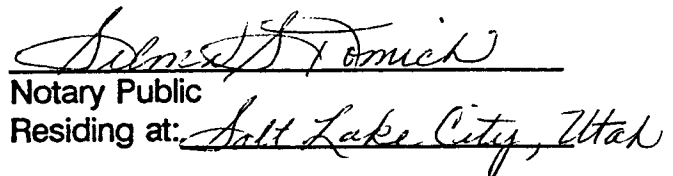 Silma S Tomich
Notary Public
Residing at: Salt Lake City, Utah